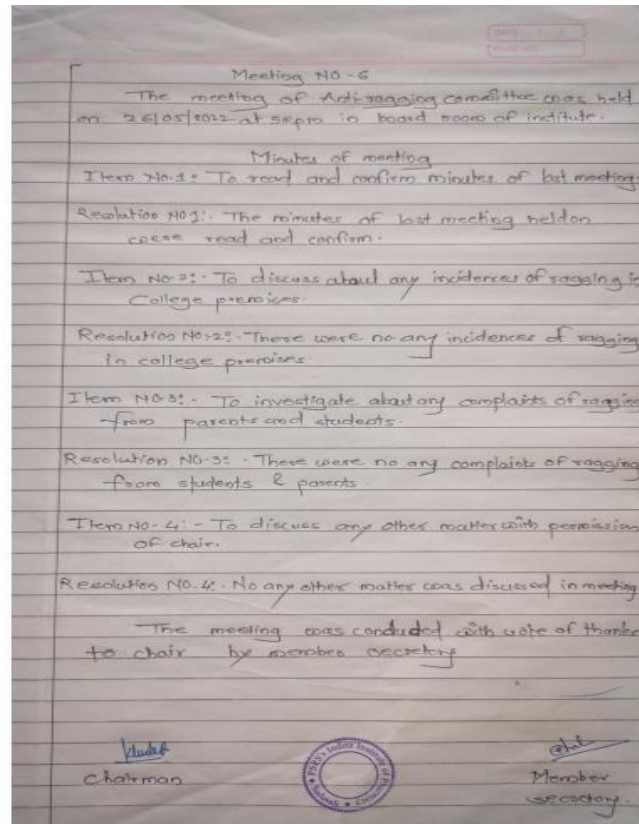 Meeting NO - 6
The meeting of Anti-ragging committee was held
on 26/05/2022 at 5:pm in board room of institute.
Minutes of meeting
Item No.1: To read and confirm minutes of last meeting.
Resolution NO 1:. The minutes of last meeting held on
were read and confirm.
Item No-2:- To discuss about any incidences of ragging in
College premises.
Resolution No:2:- There were no any incidences of ragging
in college premises.
Item NO.3:- To investigate about any complaints of ragging
from parents and students.
Resolution NO-3:- There were no any complaints of ragging
from students & parents.
Item NO-4:- To discuss any other matter with permission
of chair.
Resolution NO.4:- No any other matter was discussed in meeting
The meeting was conducted with vote of thanks
to chair by member secretary
Chairman
Member
secretary.
Indira Institute of